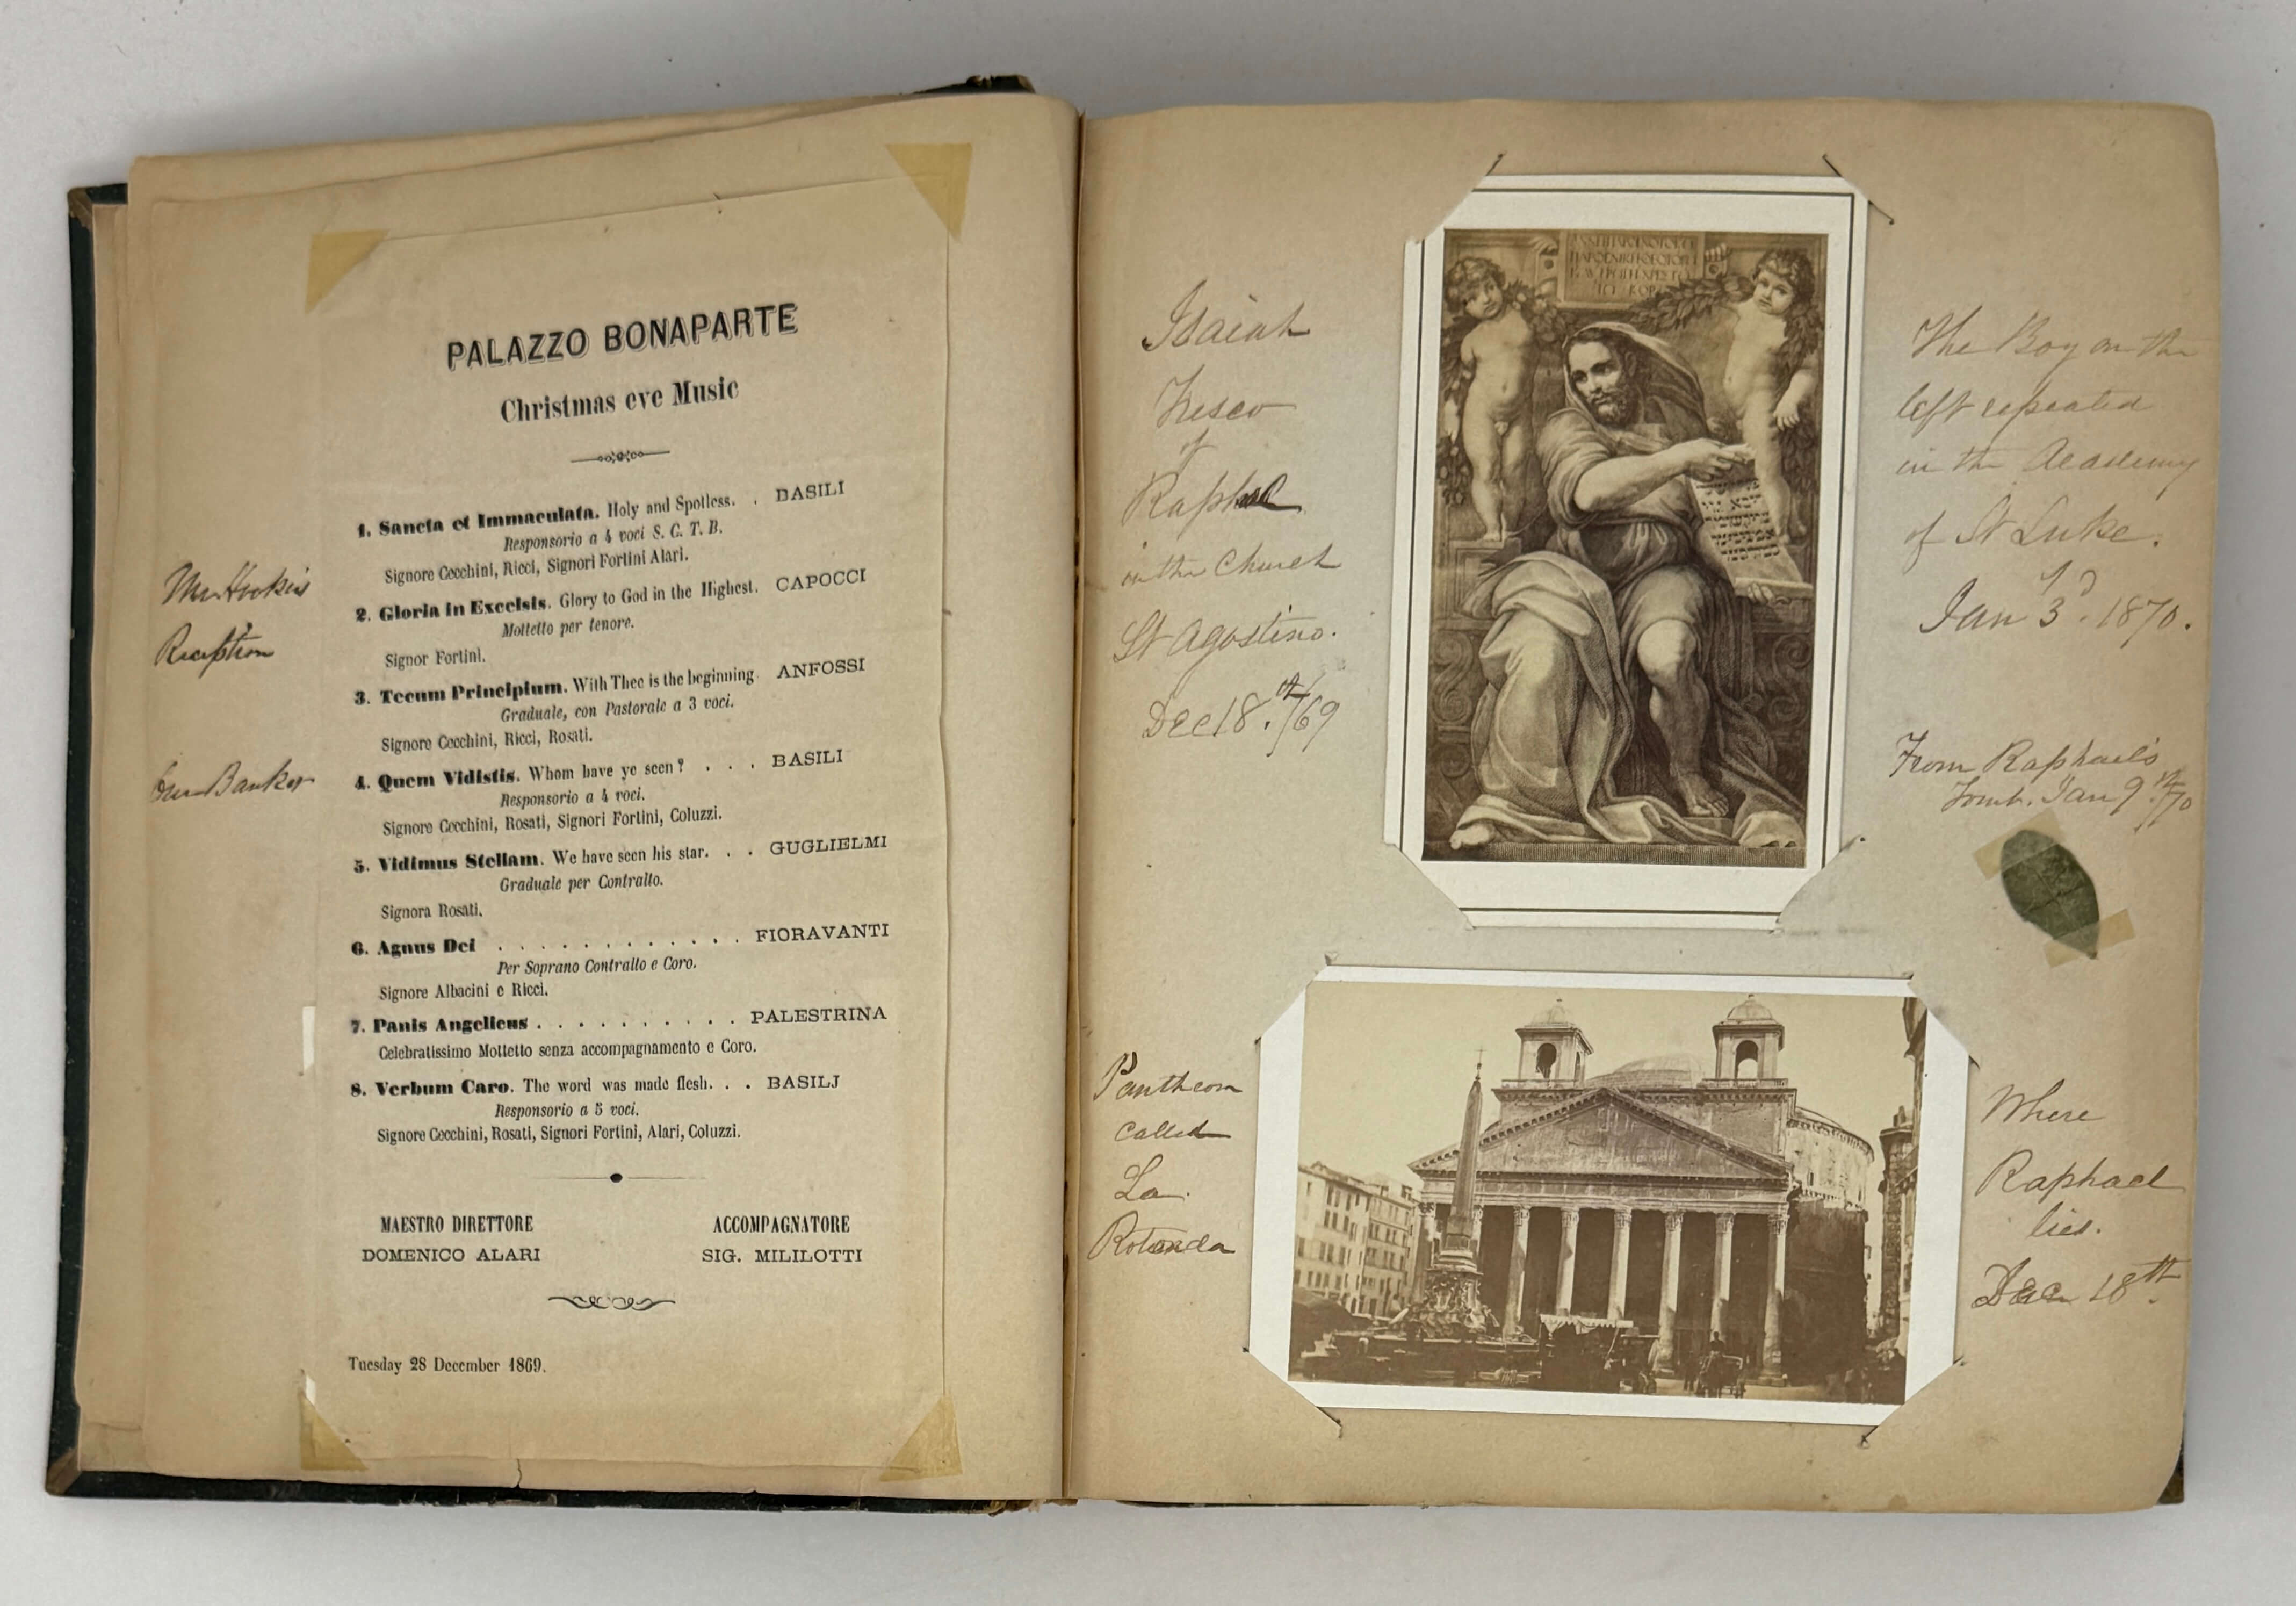 PALAZZO BONAPARTE
Christmas eve Music
1. Sancta et Immaculata. Holy and Spotless. . BASILI
Responsorio a 4 voci S. C. T. B.
Signore Cecchini, Ricci, Signori Fortini Alari.
2. Gloria in Excelsis. Glory to God in the Highest. CAPOCCI
Mottetto per tenore.
Signor Fortini.
3. Tecum Principium. With Thee is the beginning. ANFOSSI
Graduale, con Pastorale a 3 voci.
Signore Cecchini, Ricci, Rosati.
4. Quem Vidistis. Whom have ye seen? . . . BASILI
Responsorio a 4 voci.
Signore Cecchini, Rosati, Signori Fortini, Coluzzi.
5. Vidimus Stellam. We have seen his star. . . GUGLIELMI
Graduale per Contralto.
Signora Rosati.
6. Agnus Dei . . . . . . . . . . . . FIORAVANTI
Per Soprano Contralto e Coro.
Signore Albacini e Ricci.
7. Panis Angelicus . . . . . . . . . . PALESTRINA
Celebratissimo Mottetto senza accompagnamento e Coro.
8. Verbum Caro. The word was made flesh. . . BASILJ
Responsorio a 5 voci.
Signore Cecchini, Rosati, Signori Fortini, Alari, Coluzzi.
MAESTRO DIRETTORE
DOMENICO ALARI
ACCOMPAGNATORE
SIG. MILILOTTI
Tuesday 28 December 1869.
Mr Hooker's
Reception
Our Banker
Isaiah
Fresco
of
Raphael
in the Church
St Agostino.
Dec 18.th/69
The Boy on the
left repeated
in the Academy
of St Luke.
Jan 3d. 1870.
From Raphael's
Tomb. Jan 9.th/70
Pantheon
Called
La
Rotonda
Where
Raphael
lies.
Dec 18th.